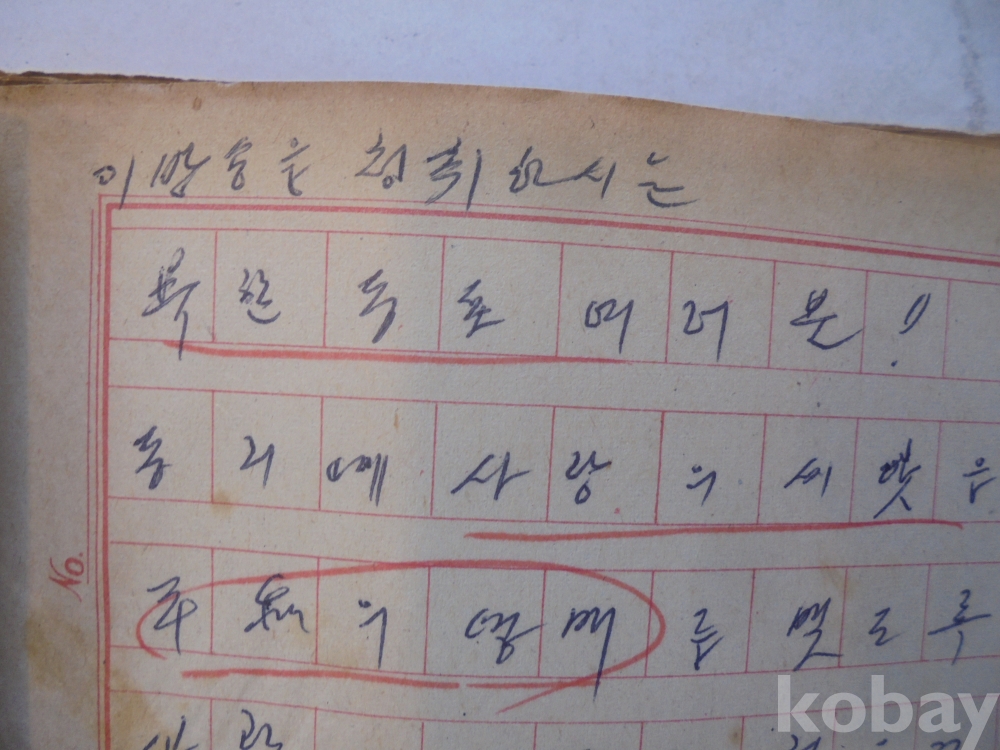 이 방송을 청취하시는
북한 동포 여러분!
동리에 사랑의 씨앗은
의 열매를 맺도록
No.
kobay